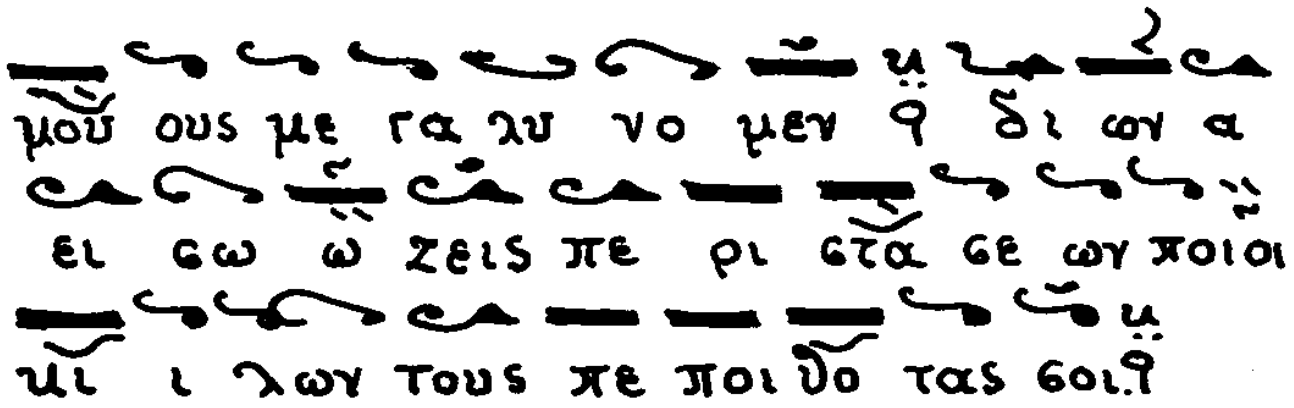 μοῦ ους με γα λυ νο μεν δι ων α
ει σω ω ζεις πε ρι στά σε ων ποι οι
κι ι λων τους πε ποι θο τας σοι.